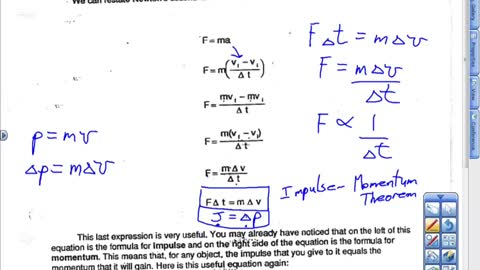 We can restate Newton's second
F = ma
F = m(v_f − v_i / Δt)
F = mv_f − mv_i / Δt
F = m(v_f − v_i) / Δt
F = mΔv / Δt
FΔt = mΔv
J = Δp
p = mv
Δp = mΔv
FΔt = mΔv
F = mΔv / Δt
F ∝ 1 / Δt
Impulse - Momentum
Theorem
This last expression is very useful. You may already have noticed that on the left of this
equation is the formula for impulse and on the right side of the equation is the formula for
momentum. This means that, for any object, the impulse that you give to it equals the
momentum that it will gain. Here is this useful equation again:
Gallery
Properties
View